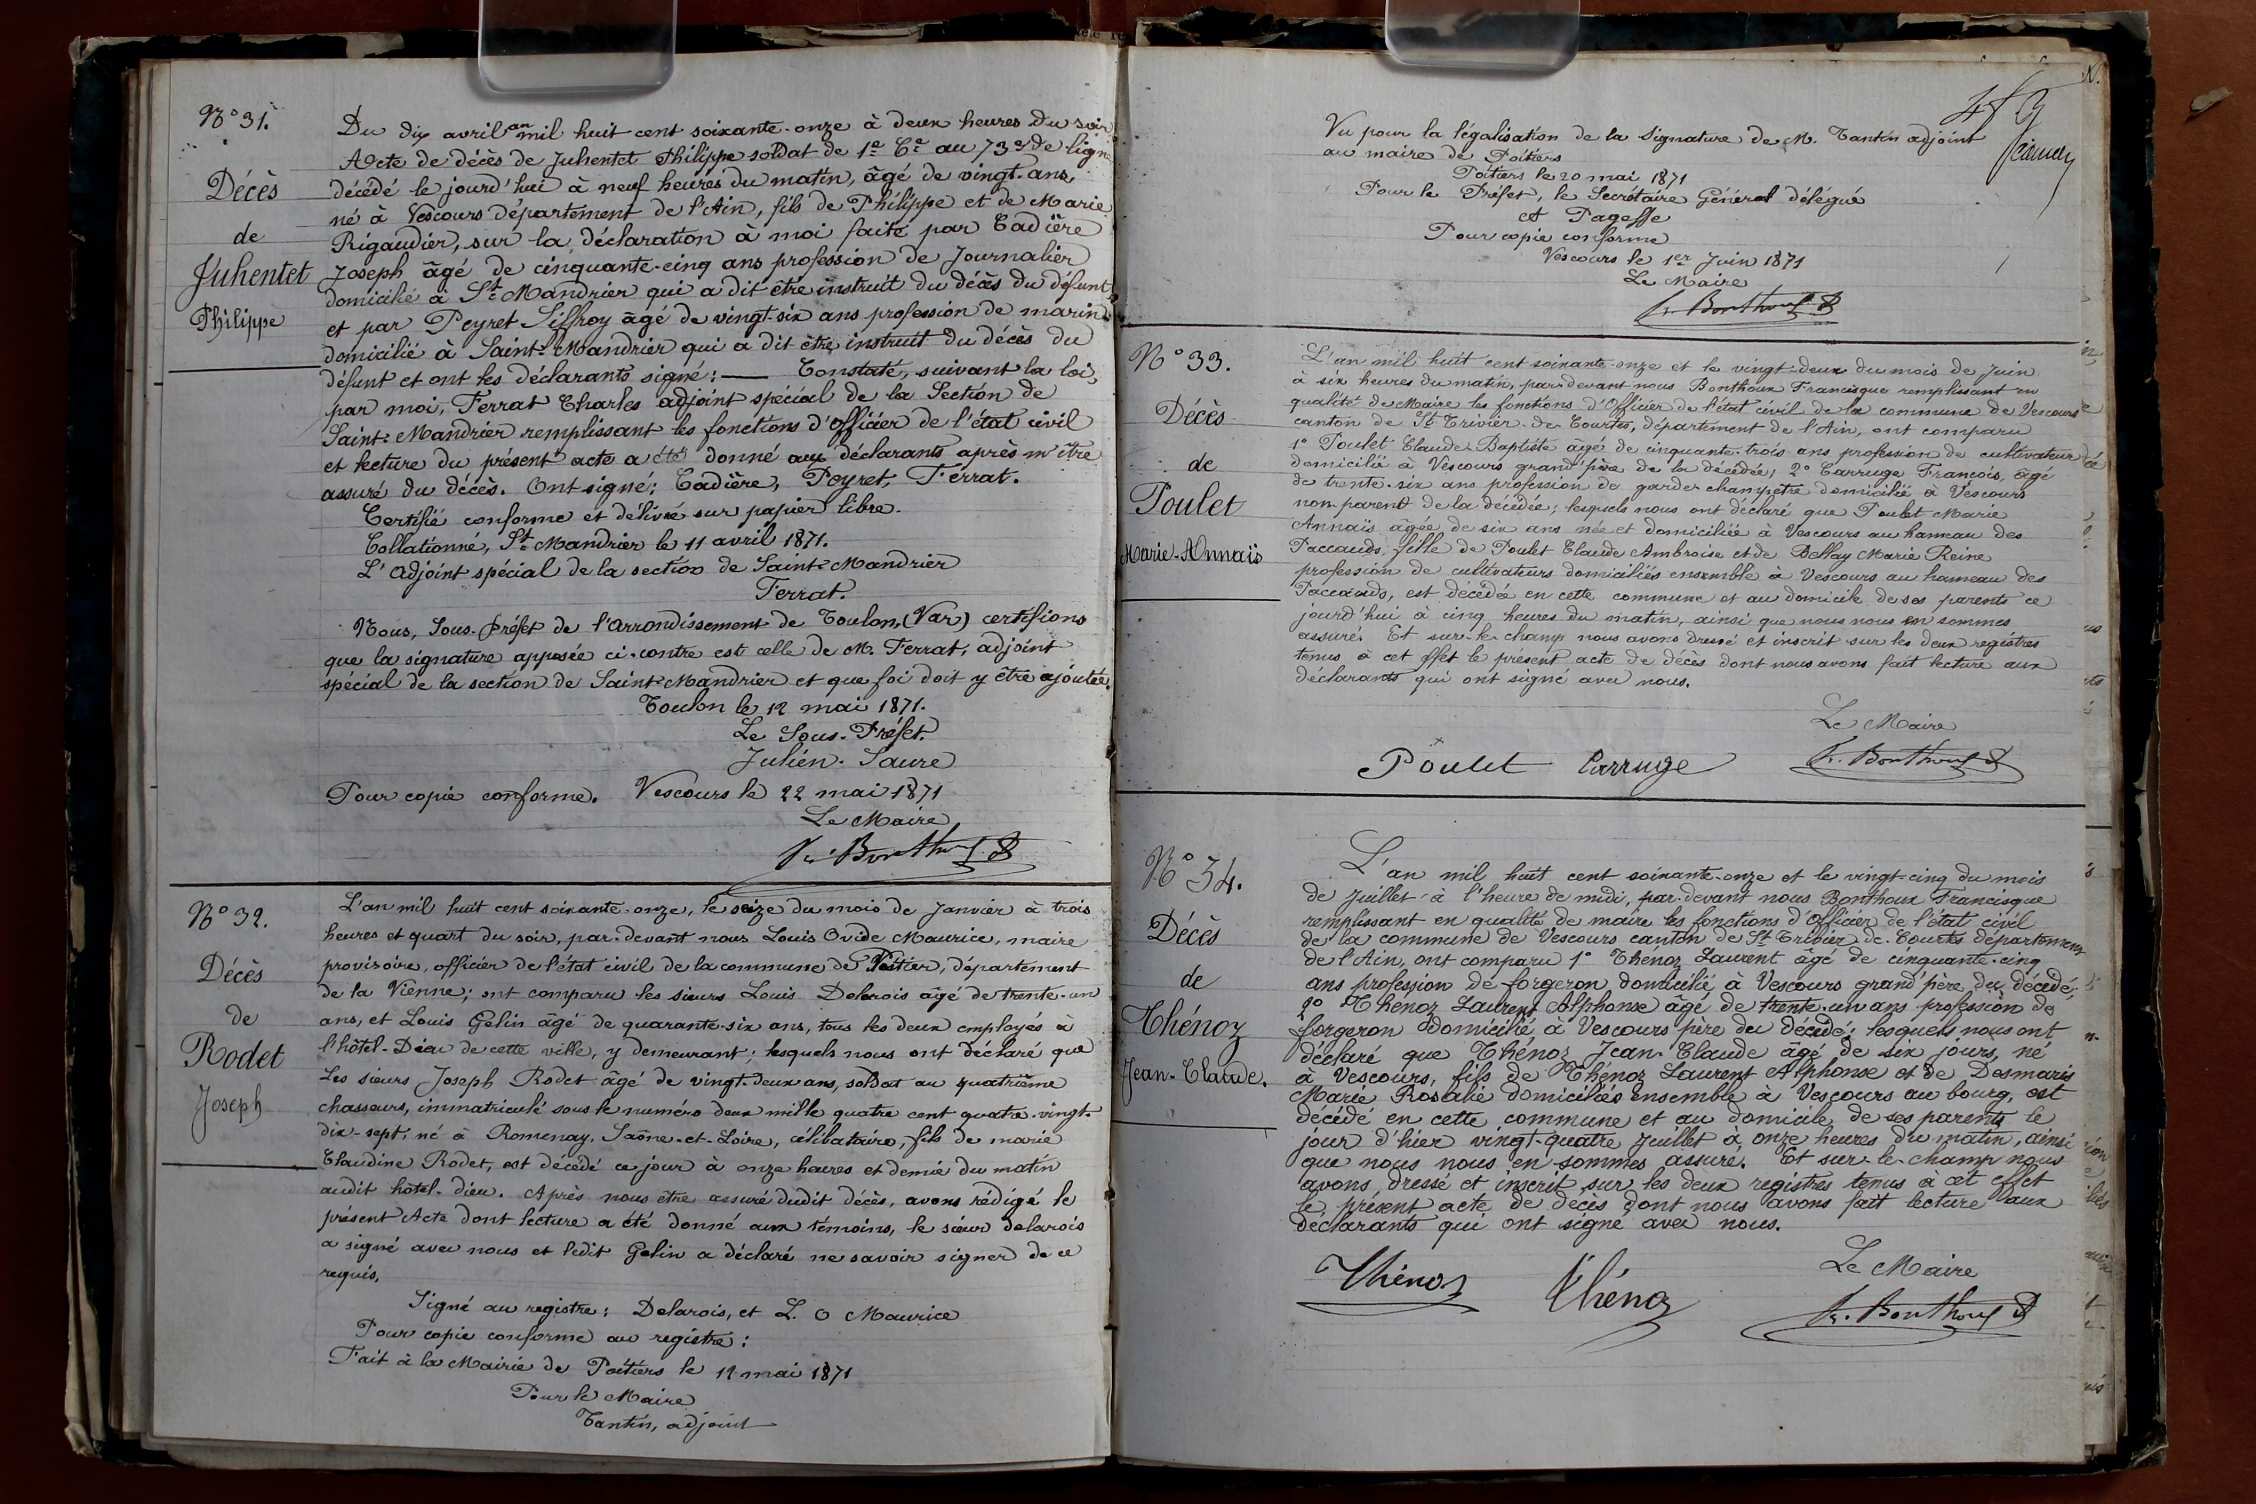 N° 31.
Décès
de
Juhentet
Philippe
Du dix avril an mil huit cent soixante-onze à deux heures du soir
Acte de décès de Juhentet Philippe soldat de 1e Ce au 73e de ligne
décédé le jourd'hui à neuf heures du matin, âgé de vingt-ans,
né à Vescours département de l'Ain, fils de Philippe et de Marie
Rigaudier, sur la déclaration à moi faite par Cadière
Joseph âgé de cinquante-cinq ans profession de Journalier
domicilié à St Mandrier qui a dit être instruit du décès du défunt
et par Peyret Siffroy âgé de vingt-six ans profession de marin
domicilié à Saint-Mandrier qui a dit être instruit du décès du
défunt et ont les déclarants signé: — Constaté, suivant la loi,
par moi, Ferrat Charles adjoint spécial de la Section de
Saint-Mandrier remplissant les fonctions d'officier de l'état civil
et lecture du présent acte a été donné aux déclarants après m'être
assuré du décès. Ont signé: Cadière, Peyret, Ferrat.
Certifié conforme et délivré sur papier libre.
Collationné, St Mandrier le 11 avril 1871.
L'Adjoint spécial de la section de Saint-Mandrier
Ferrat.
Nous, Sous-Préfet de l'arrondissement de Toulon, (Var) certifions
que la signature apposée ci-contre est celle de M. Ferrat, adjoint
spécial de la section de Saint-Mandrier et que foi doit y être ajoutée.
Toulon le 12 mai 1871.
Le Sous-Préfet.
Julien-Saure
Pour copie conforme. Vescours le 22 mai 1871
Le Maire
Fr. Bonthoux
N° 32.
Décès
de
Rodet
Joseph
L'an mil huit cent soixante-onze, le seize du mois de Janvier à trois
heures et quart du soir, par-devant nous Louis Ovide Maurice, maire
provisoire, officier de l'état civil de la commune de Poitiers, département
de la Vienne; ont comparu les sieurs Louis Delarois âgé de trente-un
ans, et Louis Gelin âgé de quarante-six ans, tous les deux employés à
l'hôtel-Dieu de cette ville, y demeurant; lesquels nous ont déclaré que
Les sieurs Joseph Rodet âgé de vingt-deux ans, soldat au quatrième
chasseurs, immatriculé sous le numéro deux mille quatre cent quatre-vingt-
dix-sept, né à Romenay, Saône-et-Loire, célibataire, fils de marie
Claudine Rodet, est décédé ce jour à onze heures et demie du matin
audit hôtel-dieu. Après nous être assuré dudit décès, avons rédigé le
présent Acte dont lecture a été donné aux témoins, le sieur delarois
a signé avec nous et ledit Gelin a déclaré ne savoir signer de ce
requis.
Signé au registre: Delarois, et L. O Maurice
Pour copie conforme au registre:
Fait à la Mairie de Poitiers le 12 mai 1871
Pour le Maire
Tantin, adjoint
Vu pour la légalisation de la signature de M. Tantin adjoint
au maire de Poitiers
Poitiers le 20 mai 1871
Pour le Préfet, le Secrétaire Général délégué
A Pagesse
Pour copie conforme
Vescours le 1er Juin 1871
Le Maire
Fr. Bonthoux
N° 33.
Décès
de
Poulet
Marie-Annaïs
L'an mil huit cent soixante-onze et le vingt-deux du mois de Juin
à six heures du matin, par-devant-nous Bonthoux Francisque remplissant en
qualité de Maire les fonctions d'Officier de l'état civil de la commune de Vescours
canton de St Trivier-de-Courtes, département de l'Ain, ont comparu
1° Poulet Claude-Baptiste âgé de cinquante-trois ans profession de cultivateur
domicilié à Vescours grand'père de la décédée; 2° Carruge François, âgé
de trente-six ans profession de garde-champêtre domicilié à Vescours
non parent de la décédée; lesquels nous ont déclaré que Poulet Marie
Annaïs âgée de six ans née et domiciliée à Vescours au hameau des
Paccauds, fille de Poulet Claude Ambroise et de Bellay Marie Reine
profession de cultivateurs domiciliés ensemble à Vescours au hameau des
Paccauds, est décédée en cette commune et au domicile de ses parents ce
jourd'hui à cinq heures du matin, ainsi que nous nous en sommes
assuré. Et sur-le-champ nous avons dressé et inscrit sur les deux registres
tenus à cet effet le présent acte de décès dont nous avons fait lecture aux
déclarants qui ont signé avec nous.
Le Maire
Poulet Carruge Fr. Bonthoux
N° 34.
Décès
de
Thénoz
Jean-Claude.
L'an mil huit cent soixante-onze et le vingt-cinq du mois
de Juillet à l'heure de midi, par-devant nous Bonthoux Francisque
remplissant en qualité de maire les fonctions d'officier de l'état civil
de la commune de Vescours canton de St Trivier-de-Courtes département
de l'Ain, ont comparu 1° Thénoz Laurent âgé de cinquante-cinq
ans profession de forgeron domicilié à Vescours grand'père du décédé;
2° Thénoz Laurent Alphonse âgé de trente-un ans profession de
forgeron domicilié à Vescours père du décédé; lesquels nous ont
déclaré que Thénoz Jean-Claude âgé de six jours, né
à Vescours, fils de Thénoz Laurent Alphonse et de Desmaris
Marie Rosalie domiciliés ensemble à Vescours au bourg, est
décédé en cette commune et au domicile de ses parents le
jour d'hier vingt-quatre Juillet à onze heures du matin, ainsi
que nous nous en sommes assuré. Et sur-le-champ nous
avons dressé et inscrit sur les deux registres tenus à cet effet
le présent acte de décès dont nous avons fait lecture aux
déclarants qui ont signé avec nous.
Le Maire
Thénoz Thénoz Fr. Bonthoux